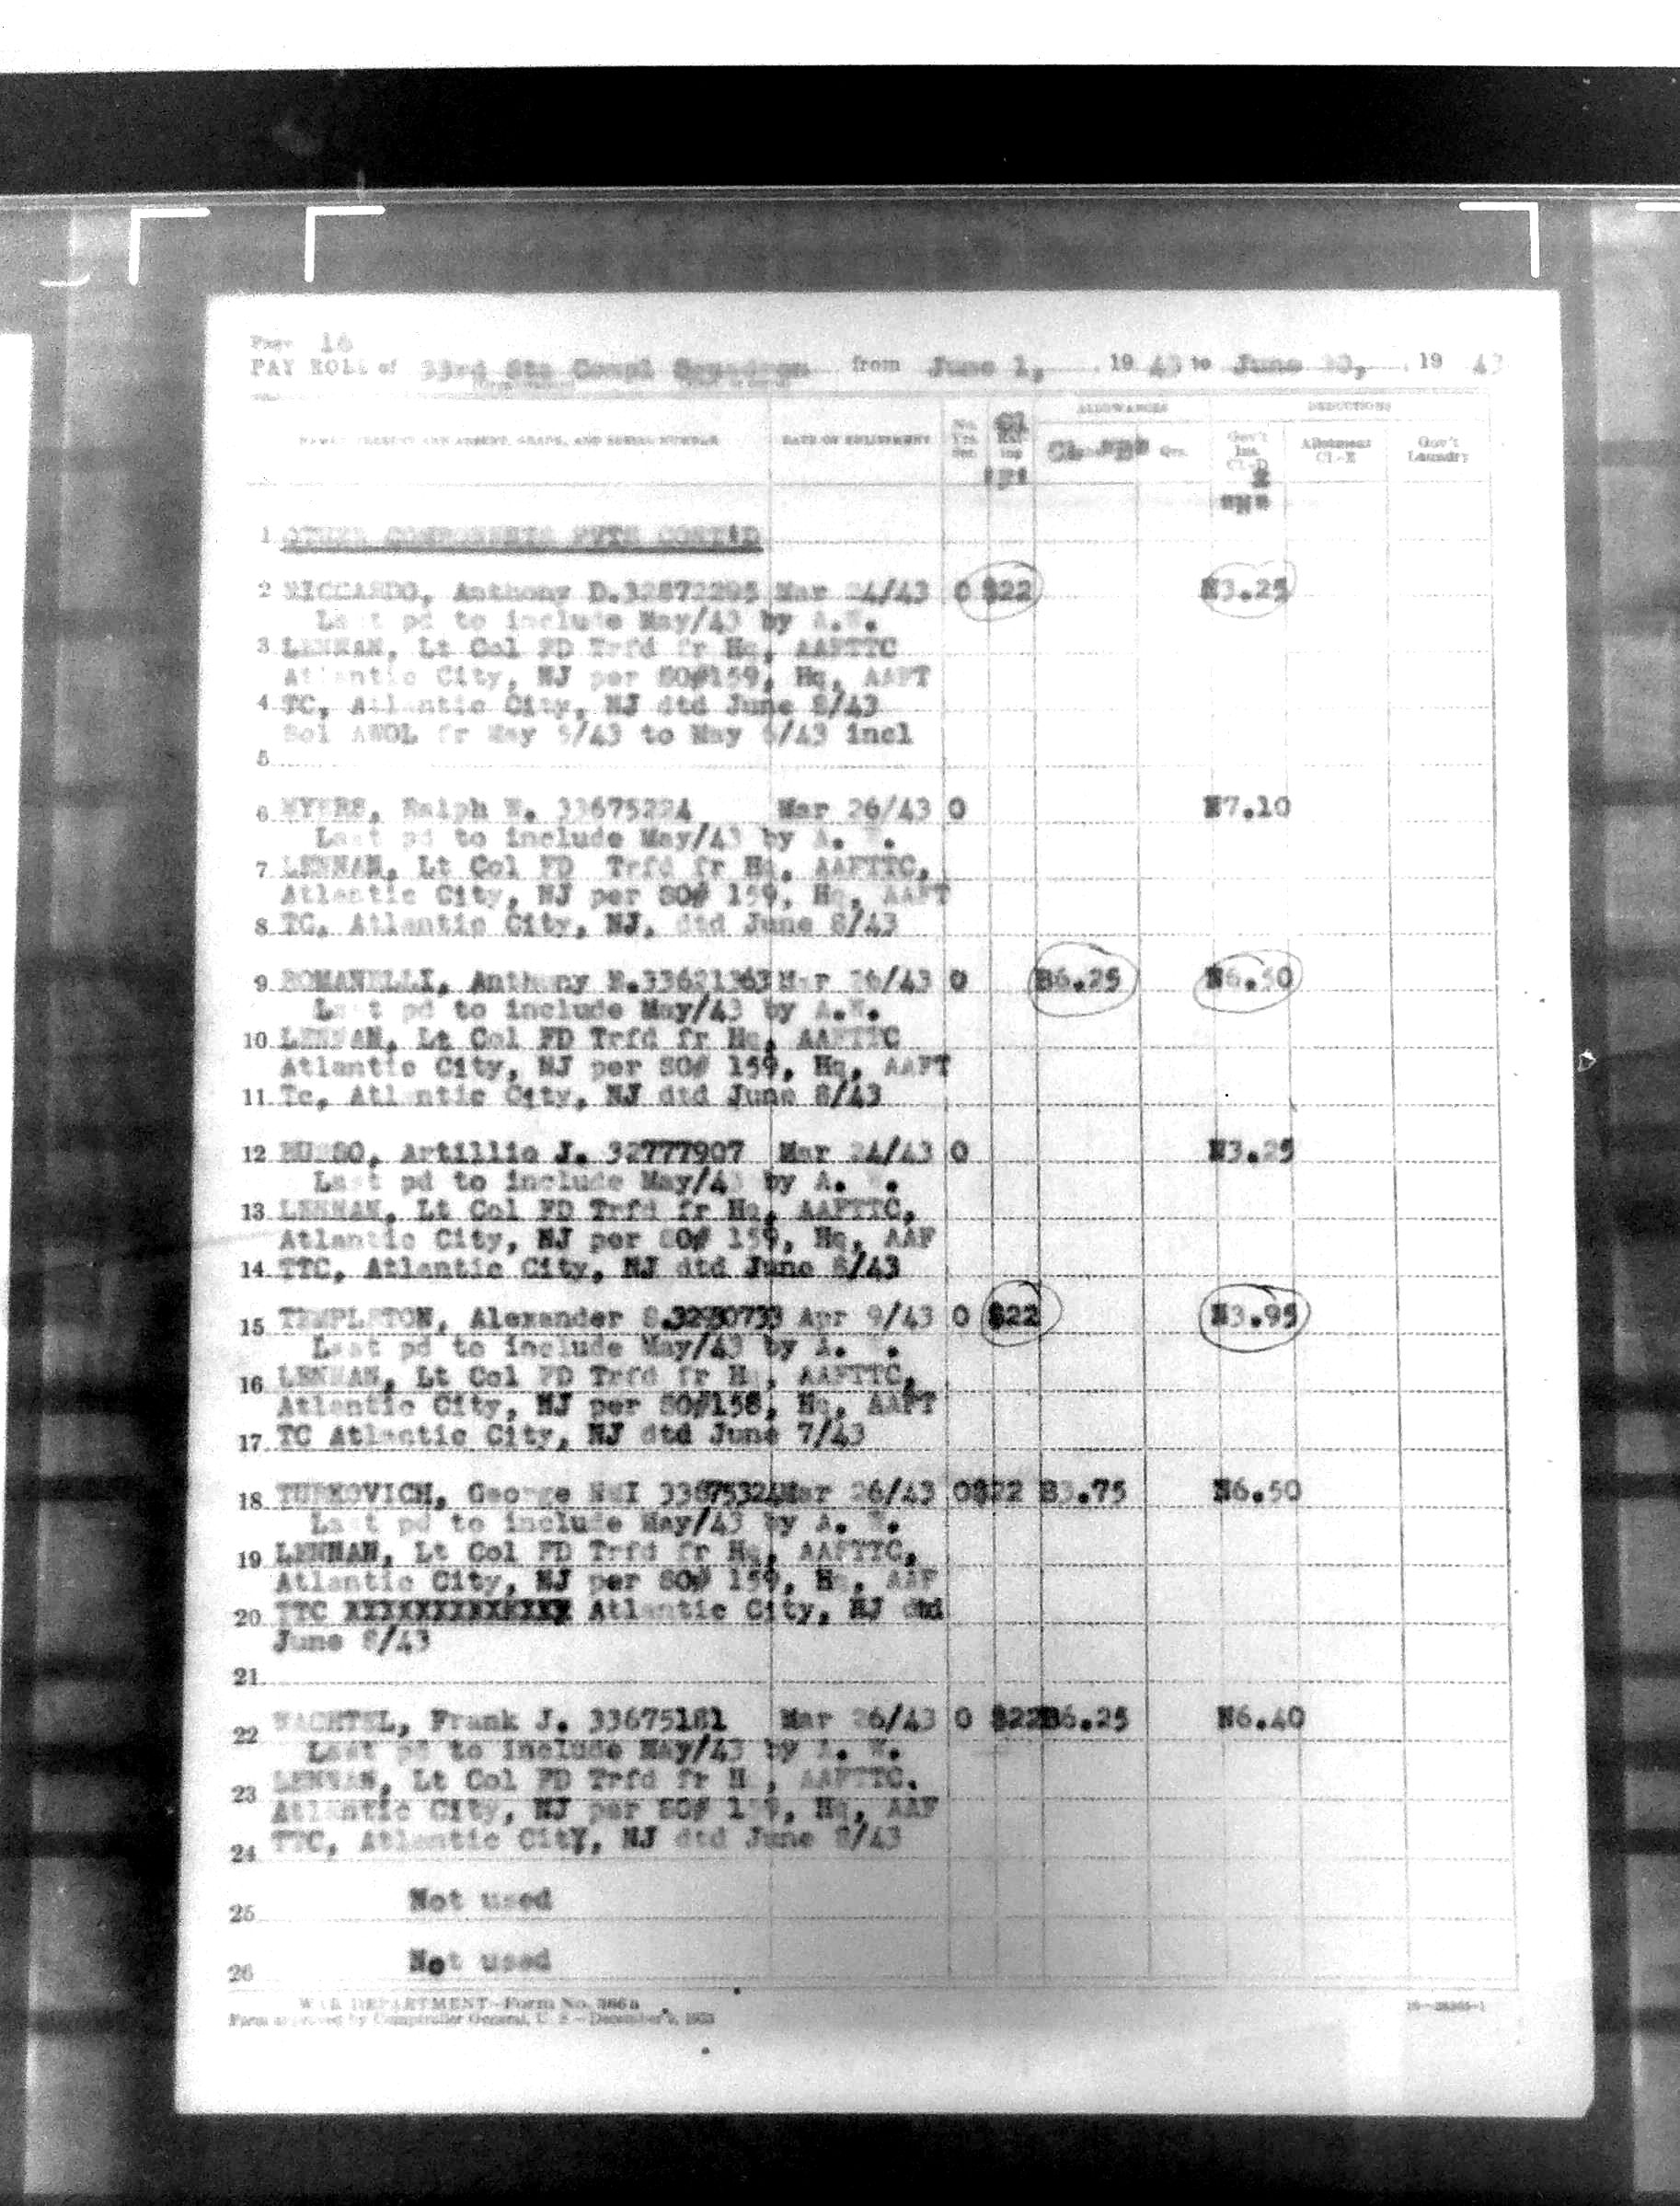 Page 16
PAY ROLL of 33rd Sta Compl Squadron from June 1, 1943 to June 30, 1943
ALLOWANCES DEDUCTIONS
NAMES PRESENT AND ABSENT, GRADE, AND SERIAL NUMBER DATE OF ENLISTMENT No. Yrs. Ser. Cl "F" Cl "B" Qrs. Gov't Ins. Cl-D & "N" Allotment Cl-E Gov't Laundry
1 OTHER COMPONENTS PVTS CONT'D
2 RICCARDO, Anthony D.32872295 Mar 24/43 0 $22 N3.25
Last pd to include May/43 by A.W.
3 LENNAN, Lt Col FD Trfd fr Hq, AAFTTC
Atlantic City, NJ per SO#159, Hq, AAFT
4 TC, Atlantic City, NJ dtd June 8/43
Sol AWOL fr May 5/43 to May 6/43 incl
5
6 MYERS, Ralph W. 33675224 Mar 26/43 0 N7.10
Last pd to include May/43 by A. W.
7 LENNAN, Lt Col FD Trfd fr Hq, AAFTTC,
Atlantic City, NJ per SO# 159, Hq, AAFT
8 TC, Atlantic City, NJ, dtd June 8/43
9 ROMANELLI, Anthony N.33621363 Mar 26/43 0 B6.25 N6.50
Last pd to include May/43 by A.W.
10 LENNAN, Lt Col FD Trfd fr Hq, AAFTTC
Atlantic City, NJ per SO# 159, Hq, AAFT
11 Tc, Atlantic City, NJ dtd June 8/43
12 RUSSO, Artillio J. 32777907 Mar 24/43 0 N3.25
Last pd to include May/43 by A. W.
13 LENNAN, Lt Col FD Trfd fr Hq, AAFTTC,
Atlantic City, NJ per SO# 159, Hq, AAF
14 TTC, Atlantic City, NJ dtd June 8/43
15 TEMPLETON, Alexander S. Apr 9/43 0 $22 N3.95
Last pd to include May/43 by A. W.
16 LENNAN, Lt Col FD Trfd fr Hq, AAFTTC,
Atlantic City, NJ per SO#158, Hq, AAFT
17 TC Atlantic City, NJ dtd June 7/43
18 TURKOVICH, George NMI 33675324 Mar 26/43 0 $22 B3.75 N6.50
Last pd to include May/43 by A. W.
19 LENNAN, Lt Col FD Trfd fr Hq, AAFTTC,
Atlantic City, NJ per SO# 159, Hq, AAF
20 TTC XXXXXXXXXXXXX Atlantic City, NJ dtd
June 8/43
21
22 WACHTEL, Frank J. 33675181 Mar 26/43 0 $22 B6.25 N6.40
Last pd to include May/43 by A. W.
23 LENNAN, Lt Col FD Trfd fr Hq, AAFTTC.
Atlantic City, NJ per SO# 159, Hq, AAF
24 TTC, Atlantic CitY, NJ dtd June 8/43
25 Not used
26 Not used
WAR DEPARTMENT—Form No. 366a
Form approved by Comptroller General, U. S.—December